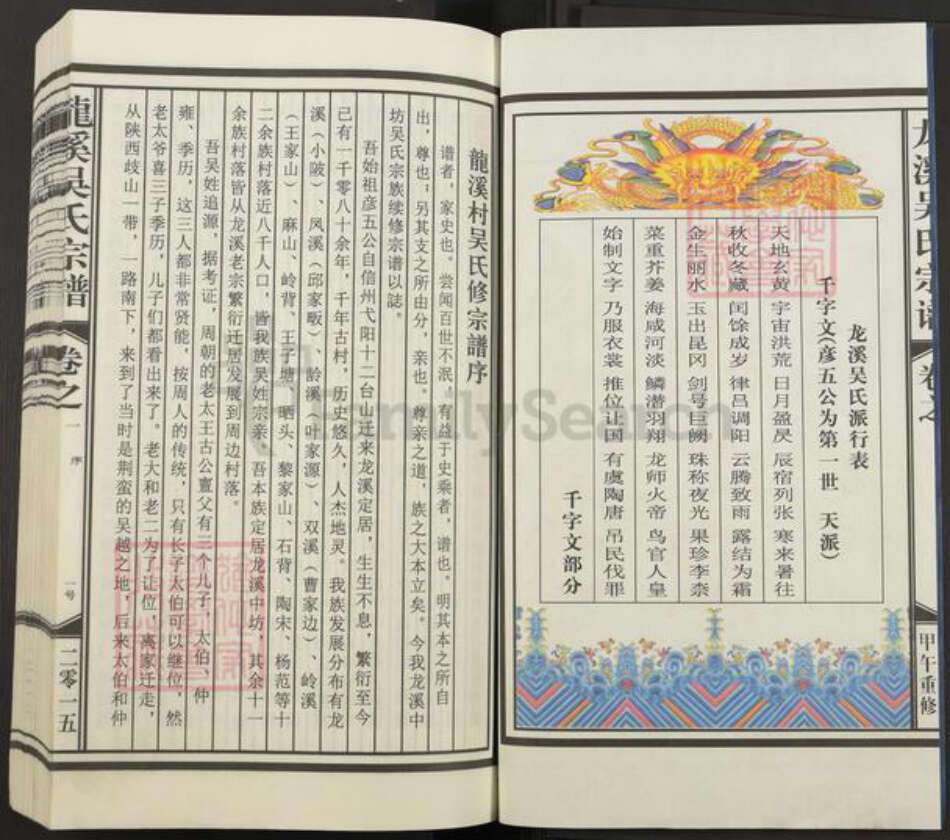 龙溪吴氏宗谱
卷之
甲午重修
龙溪吴氏派行表
千字文(彦五公为第一世 天派)
天地玄黄 宇宙洪荒 日月盈昃 辰宿列张 寒来暑往
秋收冬藏 闰馀成岁 律吕调阳 云腾致雨 露结为霜
金生丽水 玉出昆冈 剑号巨阙 珠称夜光 果珍李柰
菜重芥姜 海咸河淡 鳞潜羽翔 龙师火帝 鸟官人皇
始制文字 乃服衣裳 推位让国 有虞陶唐 吊民伐罪
千字文部分
龍溪村吴氏修宗譜序
谱者，家史也。尝闻百世不泯，有益于史乘者，谱也。明其本之所自
出，尊也；另其支之所由分，亲也。尊亲之道，族之大本立矣。今我龙溪中
坊吴氏宗族续修宗谱以誌。
吾始祖彦五公自信州弋阳十二台山迁来龙溪定居，生生不息，繁衍至今
已有一千零八十余年，千年古村，历史悠久，人杰地灵。我族发展分布有龙
溪（小陂）、凤溪（邱家畈）、龄溪（叶家源）、双溪（曹家边）、岭溪
（王家山）、麻山、岭背、王子塘、晒头、黎家山、石背、陶宋、杨范等十
二余族村落近八千人口，皆我族吴姓宗亲。吾本族定居龙溪中坊，其余十一
余族村落皆从龙溪老宗繁衍迁居发展到周边村落。
吾吴姓追源，据考证，周朝的老太王古公亶父有三个儿子，太伯、仲
雍、季历，这三人都非常贤能，按周人的传统，只有长子太伯可以继位，然
老太爷喜三子季历，儿子们都看出来了。老大和老二为了让位，离家迁走，
从陕西歧山一带，一路南下，来到了当时是荆蛮的吴越之地，后来太伯和仲
龍溪吴氏宗譜
卷之一
序
一号
二零一五
FamilySearch